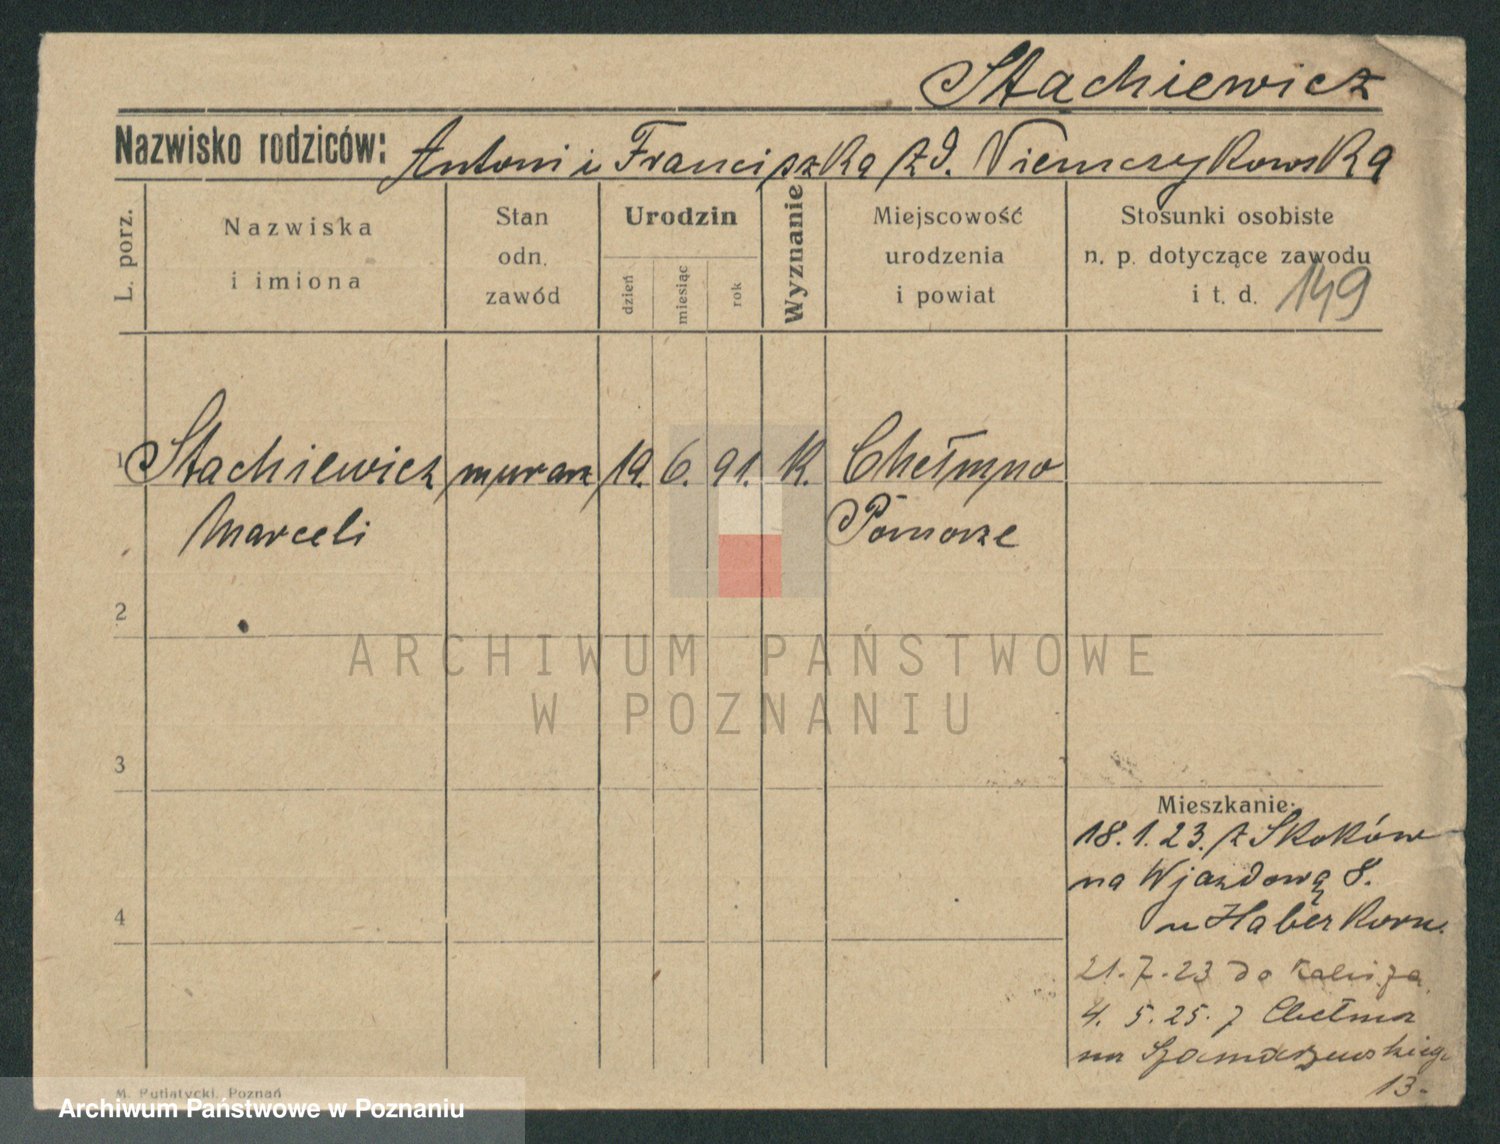 Stachiewicz
Nazwisko rodziców: Antoni i Franciszka z d. Niemczykowska
L. porz.
Nazwiska
i imiona
Stan
odn.
zawód
Urodzin
dzień
miesiąc
rok
Wyznanie
Miejscowość
urodzenia
i powiat
Stosunki osobiste
n. p. dotyczące zawodu
i t. d.
149
1 Stachiewicz murarz 19. 6. 91. K. Chełmno
Marceli Pomorze
2
ARCHIWUM PAŃSTWOWE
W POZNANIU
3
Mieszkanie:
18.1.23. z Skoków
na Wjazdową 8.
u Haberkorn.
4
21.7.23 do Kalisza
4. 5. 25. z Chełma
na Szamarzewskiego
13-
M. Putiatycki, Poznań
Archiwum Państwowe w Poznaniu